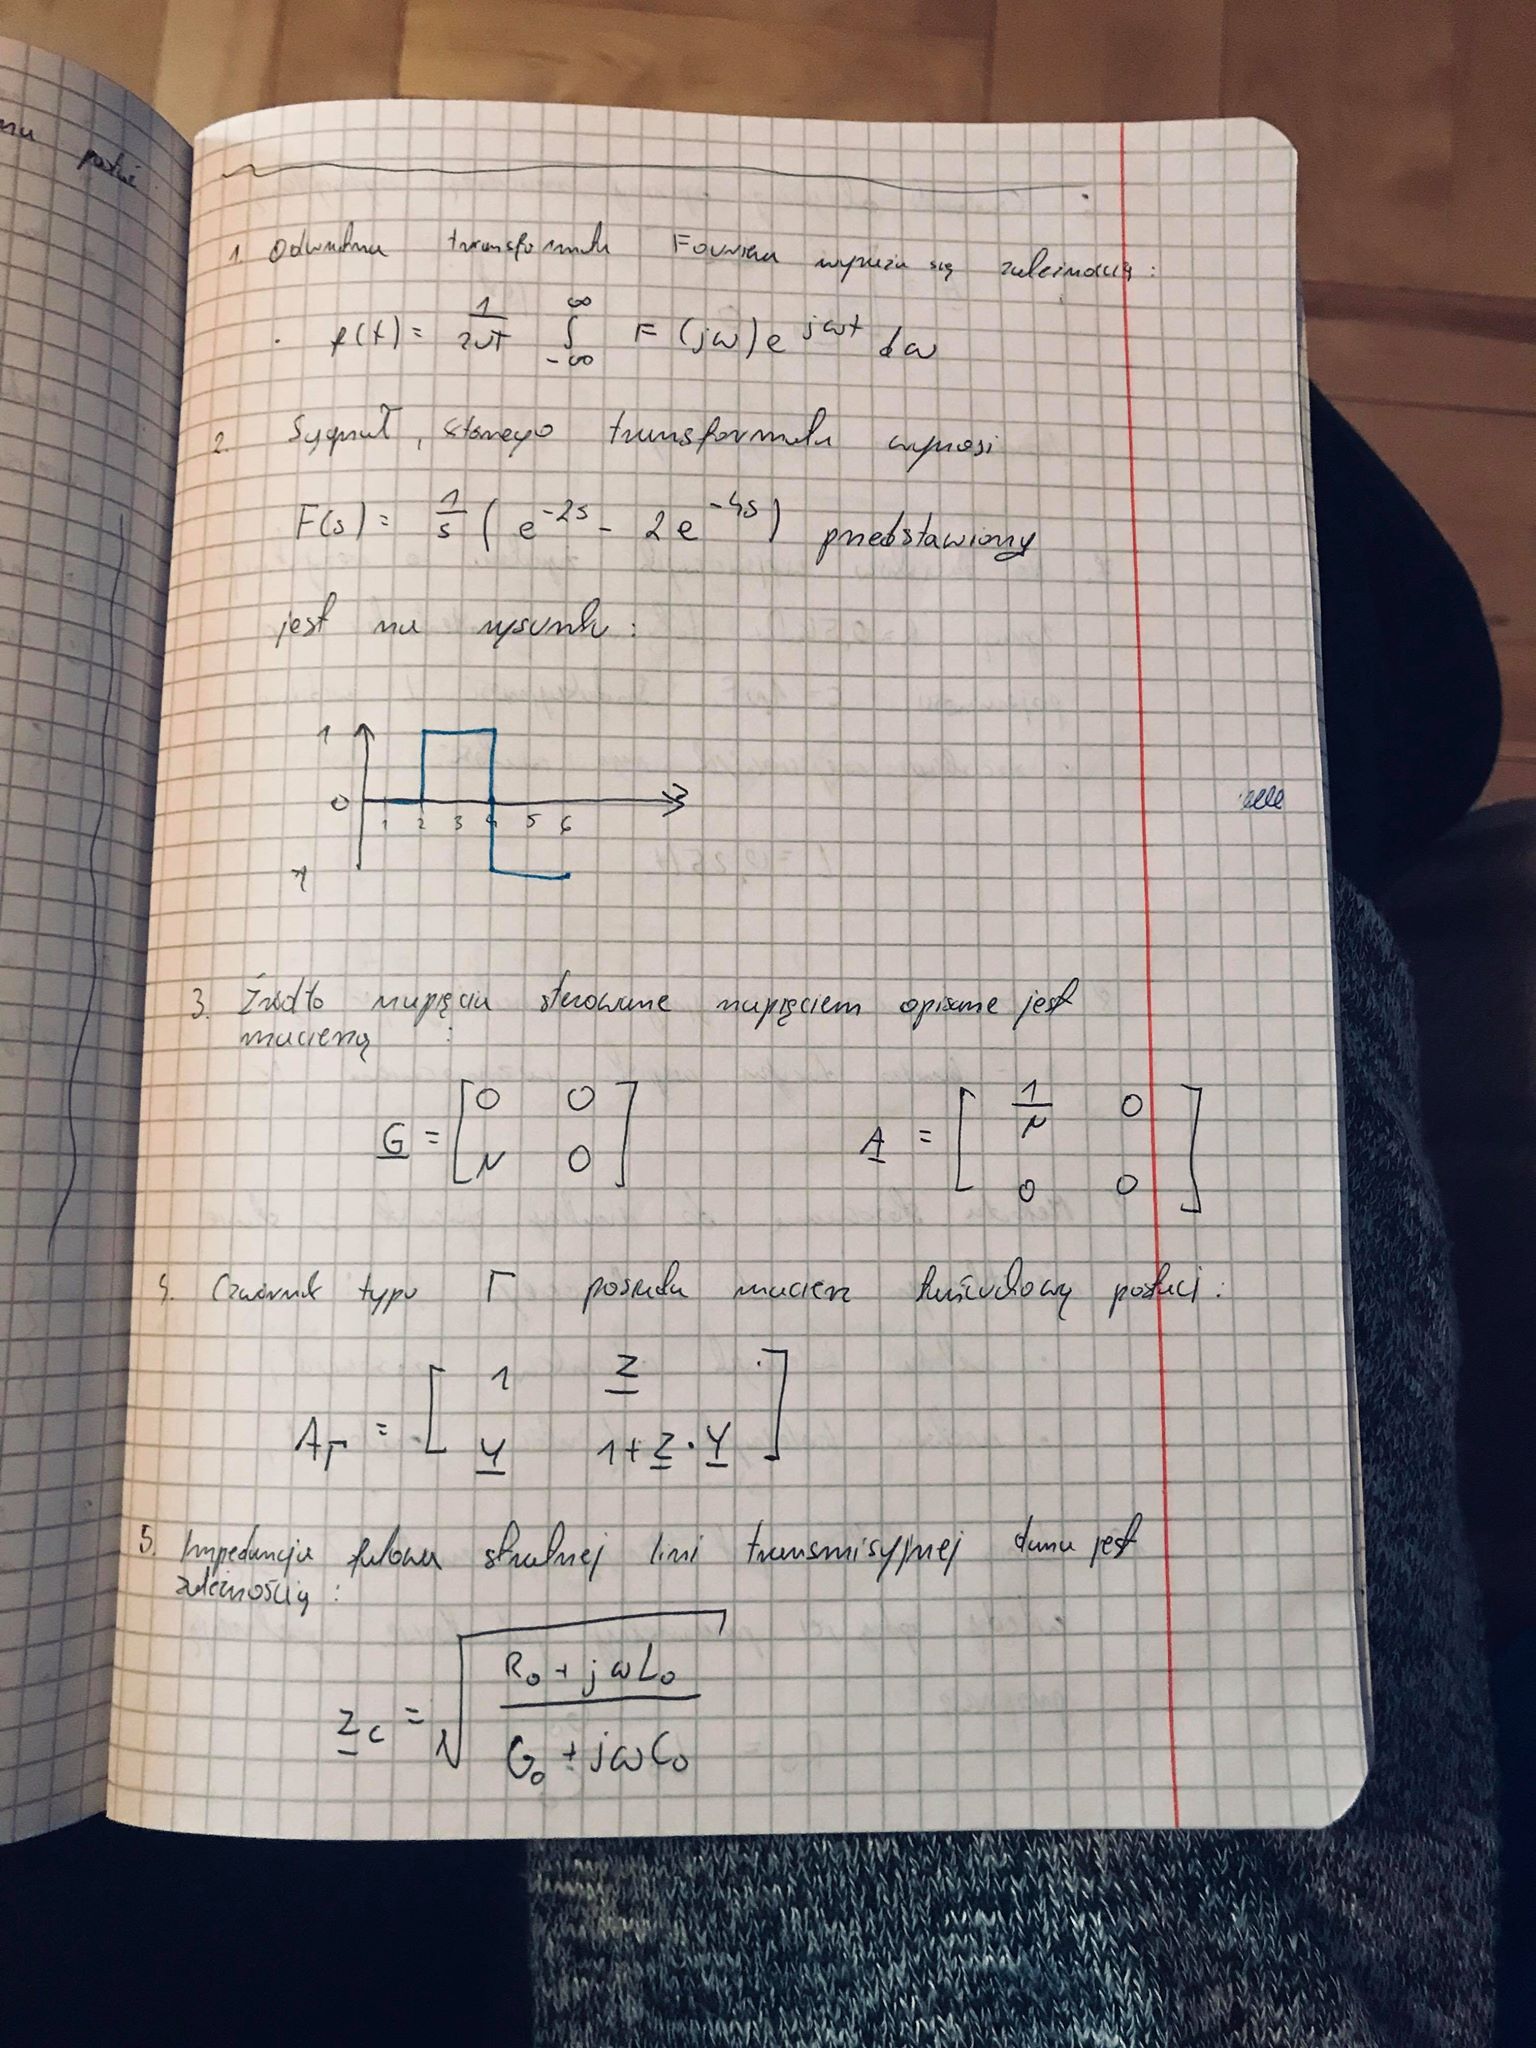 mu
1. Odwrotna transformata Fouriera wyraża się zależnością:
f(t) = 1/2π ∫_{-∞}^{∞} F(jω) e^{jωt} dω
2. Sygnał, którego transformata wynosi
F(s) = 1/s (e^{-2s} - 2e^{-4s}) przedstawiony
jest na rysunku:
1
0
1 2 3 4 5 6
-1
3. Źródło napięcia sterowane napięciem opisane jest
macierzą :
G = [0 0; μ 0] A = [1/μ 0; 0 0]
4. Czwórnik typu Γ posiada macierz łańcuchową postaci:
A_Γ = [1 Z; Y 1+Z·Y]
5. Impedancja falowa stratnej linii transmisyjnej dana jest
zależnością:
Z_c = √((R_0 + jωL_0)/(G_0 + jωC_0))